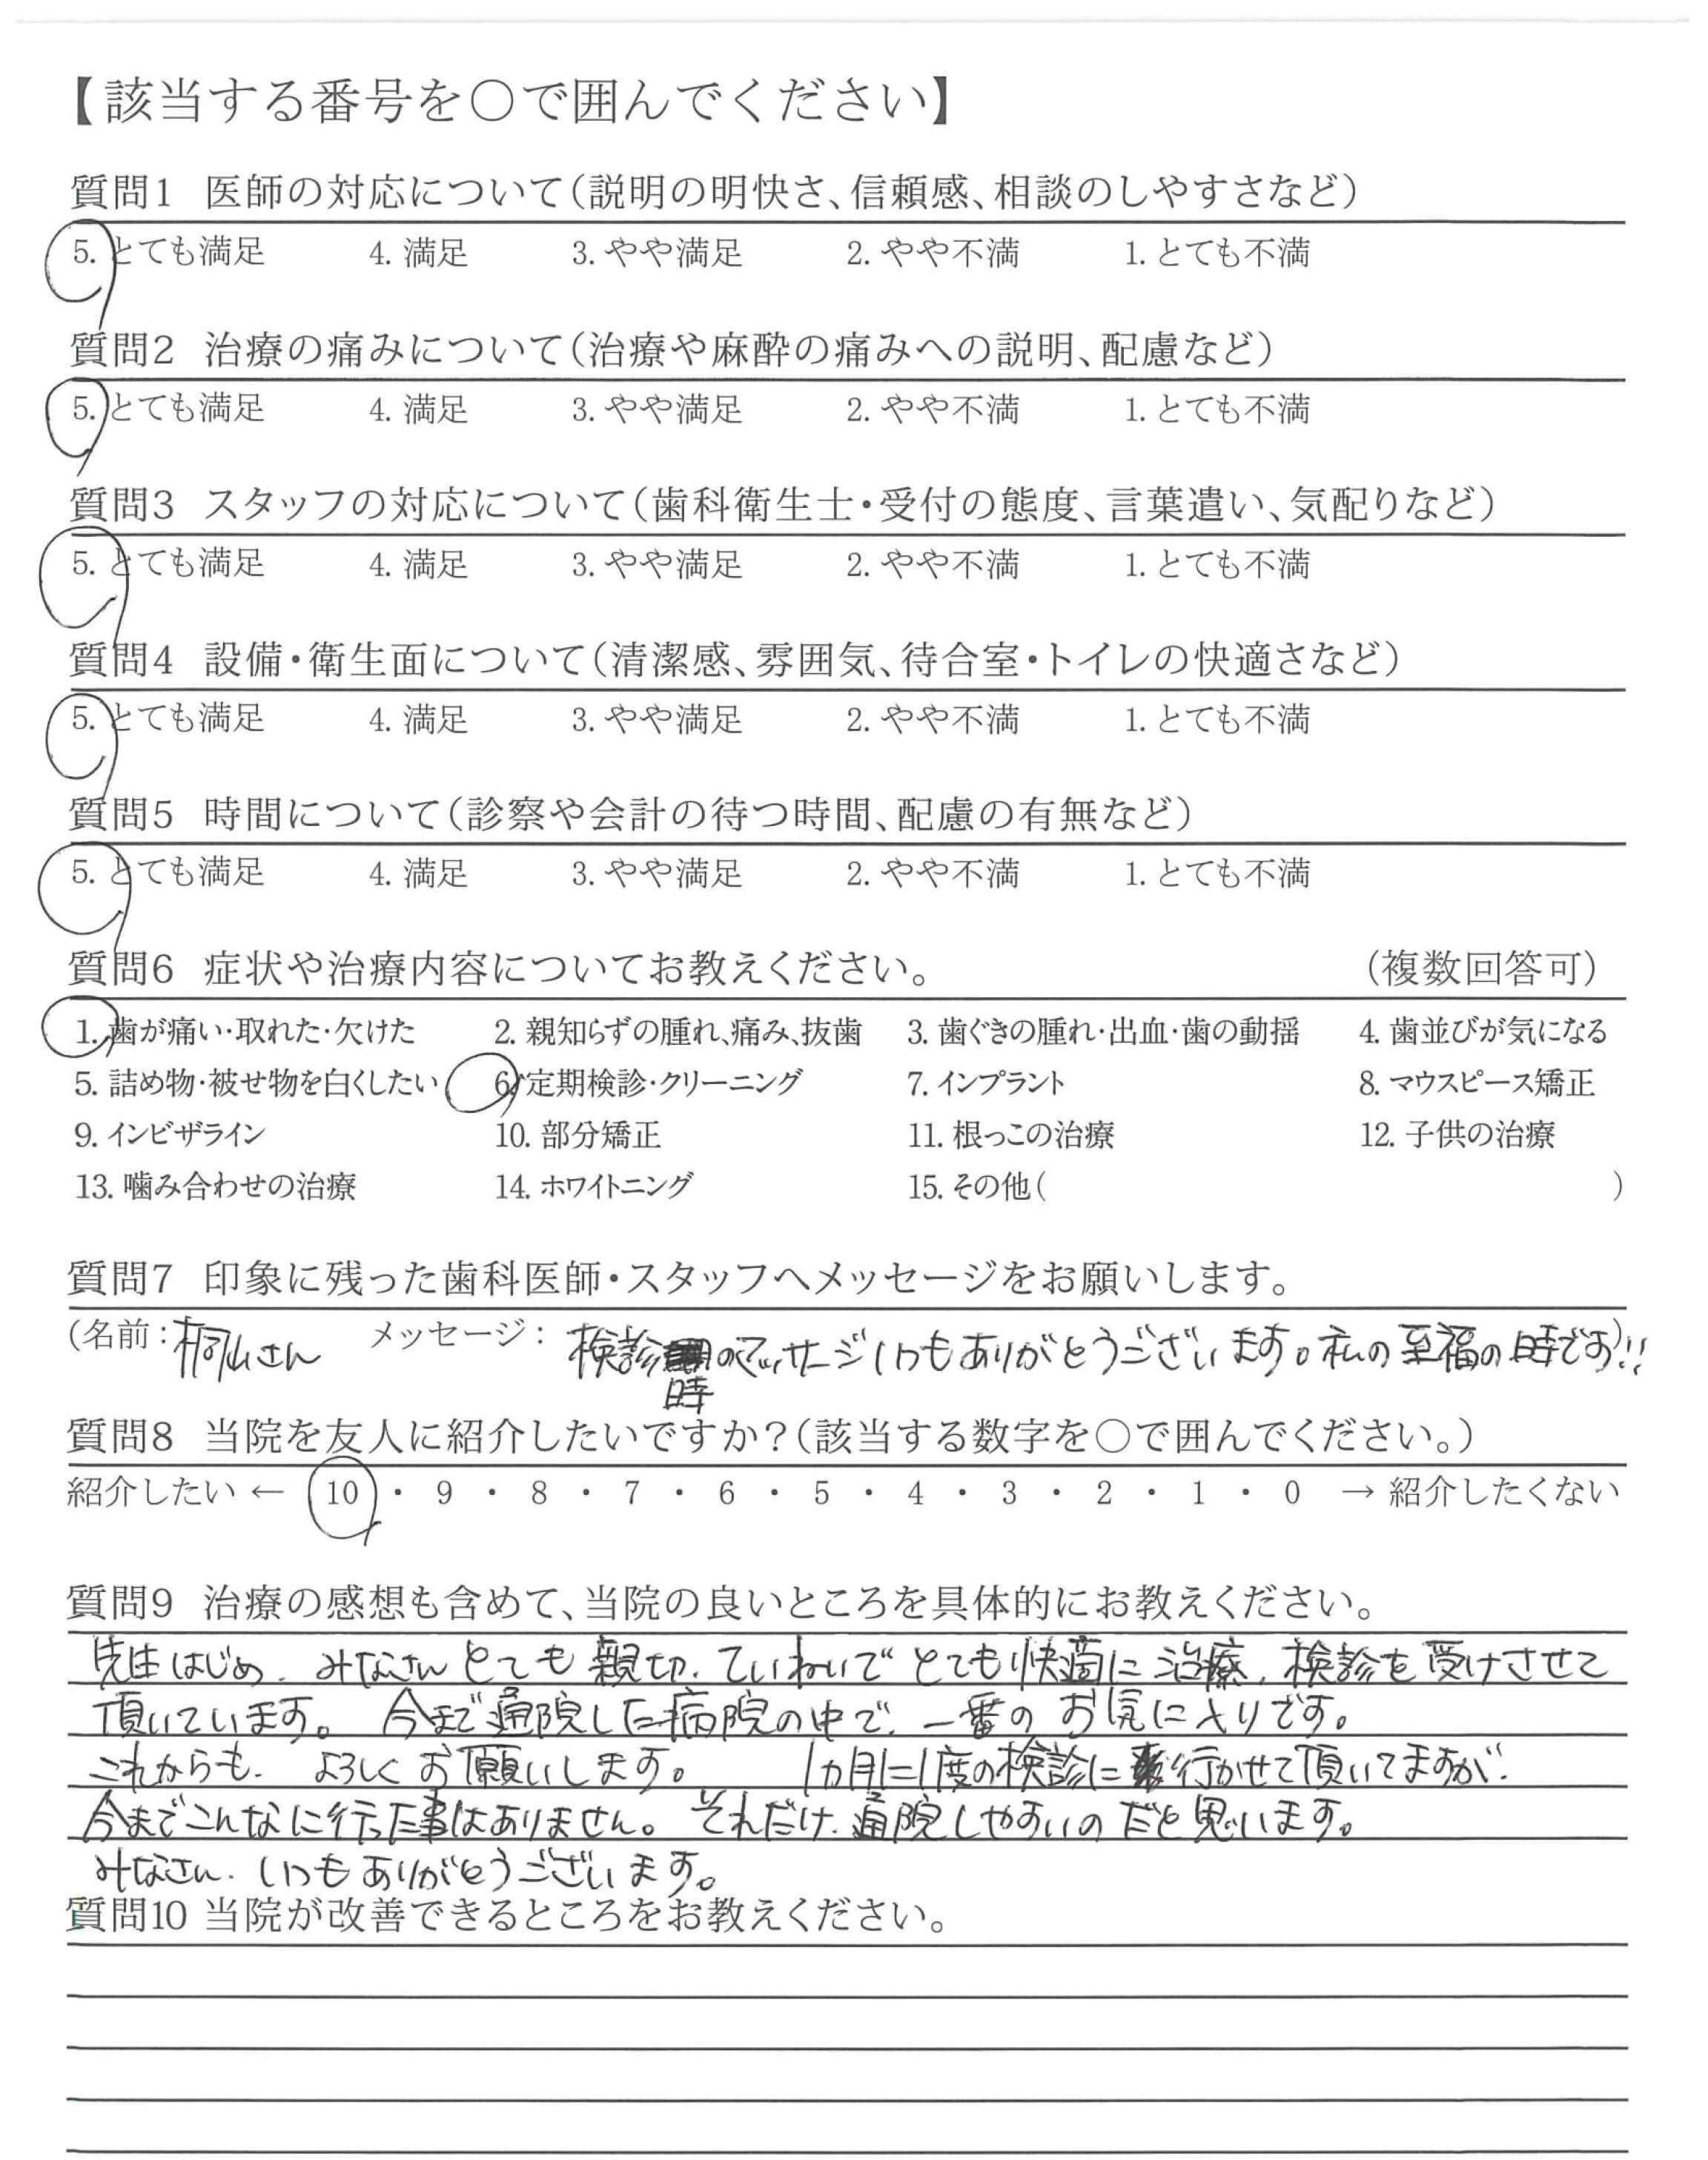 【該当する番号を○で囲んでください】
質問1 医師の対応について(説明の明快さ、信頼感、相談のしやすさなど)
5. とても満足 4. 満足 3. やや満足 2. やや不満 1. とても不満
質問2 治療の痛みについて(治療や麻酔の痛みへの説明、配慮など)
5. とても満足 4. 満足 3. やや満足 2. やや不満 1. とても不満
質問3 スタッフの対応について(歯科衛生士・受付の態度、言葉遣い、気配りなど)
5. とても満足 4. 満足 3. やや満足 2. やや不満 1. とても不満
質問4 設備・衛生面について(清潔感、雰囲気、待合室・トイレの快適さなど)
5. とても満足 4. 満足 3. やや満足 2. やや不満 1. とても不満
質問5 時間について(診察や会計の待つ時間、配慮の有無など)
5. とても満足 4. 満足 3. やや満足 2. やや不満 1. とても不満
質問6 症状や治療内容についてお教えください。 (複数回答可)
1. 歯が痛い・取れた・欠けた 2. 親知らずの腫れ、痛み、抜歯 3. 歯ぐきの腫れ・出血・歯の動揺 4. 歯並びが気になる
5. 詰め物・被せ物を白くしたい 6. 定期検診・クリーニング 7. インプラント 8. マウスピース矯正
9. インビザライン 10. 部分矯正 11. 根っこの治療 12. 子供の治療
13. 噛み合わせの治療 14. ホワイトニング 15. その他( )
質問7 印象に残った歯科医師・スタッフへメッセージをお願いします。
(名前:桐山さん メッセージ: 検診時のマッサージいつもありがとうございます。私の至福の時です)!!
質問8 当院を友人に紹介したいですか?(該当する数字を○で囲んでください。)
紹介したい ← 10 ・ 9 ・ 8 ・ 7 ・ 6 ・ 5 ・ 4 ・ 3 ・ 2 ・ 1 ・ 0 → 紹介したくない
質問9 治療の感想も含めて、当院の良いところを具体的にお教えください。
先生はじめ、みなさんとても親切、ていねいでとても快適に治療、検診を受けさせて
頂いています。 今まで通院した病院の中で、一番のお気に入りです。
これからも、よろしくお願いします。 1ヵ月に1度の検診に行かせて頂いてますが、
今までこんなに行った事はありません。それだけ、通院しやすいのだと思います。
みなさん、いつもありがとうございます。
質問10 当院が改善できるところをお教えください。